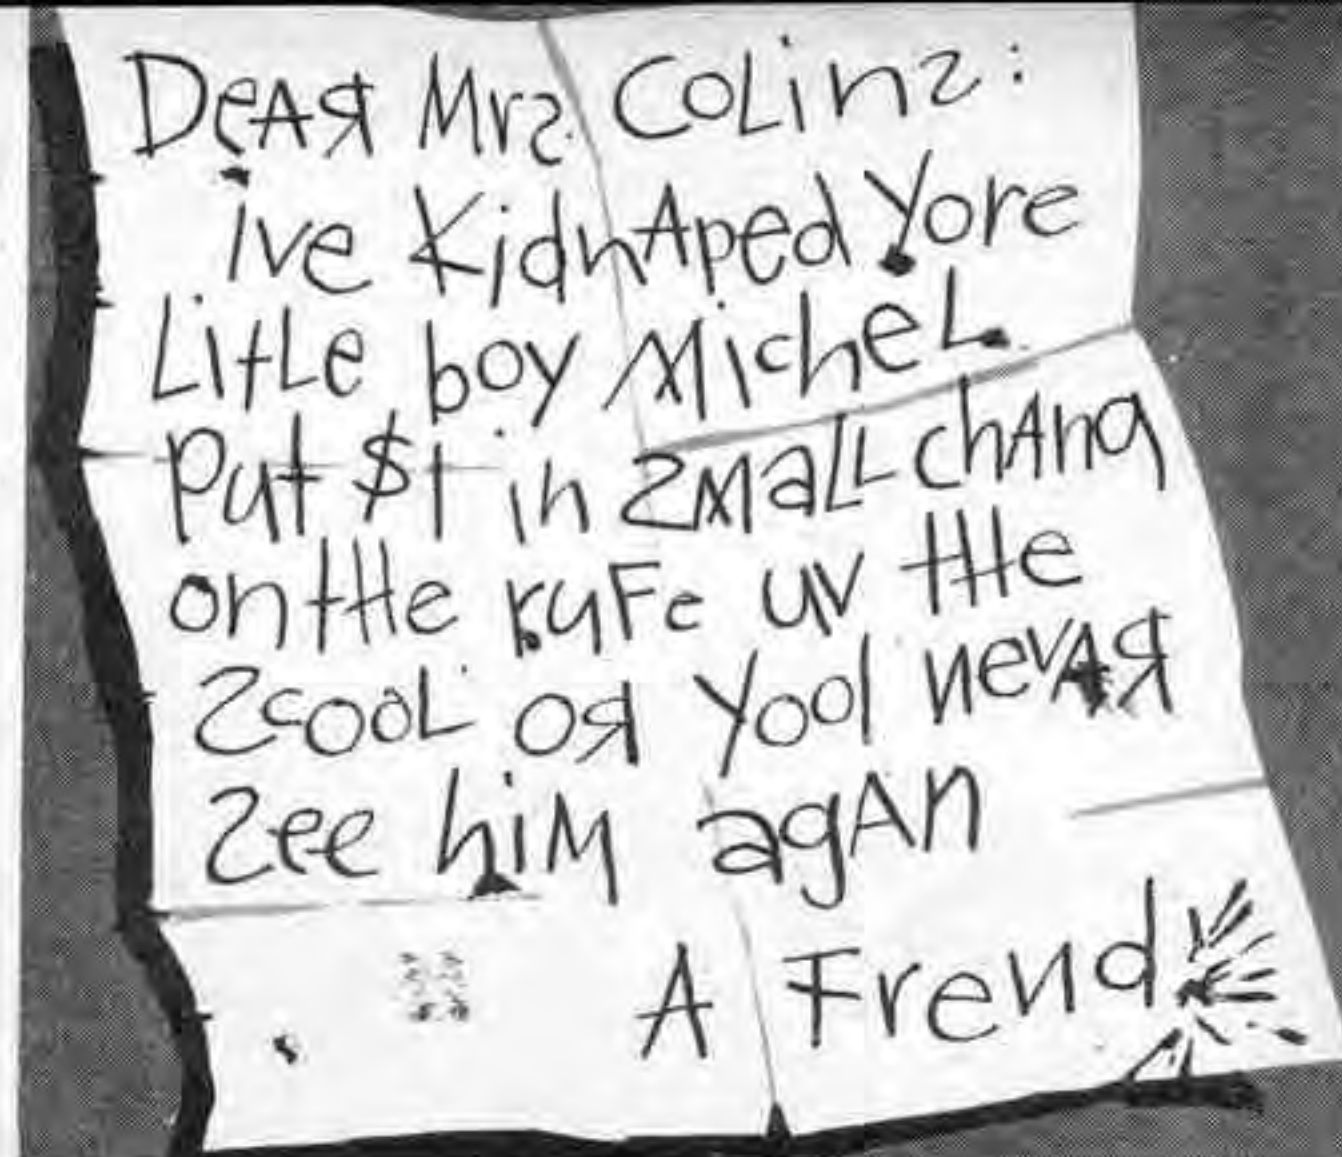 DeAR Mrs. CoLins:
ive KidnAped Yore
LittLe boy MicheL.
Put $1 in SMaLL chAng
on tHe ruFe uv tHe
ScooL oR Yool nevAR
See hiM agAn
A Frend